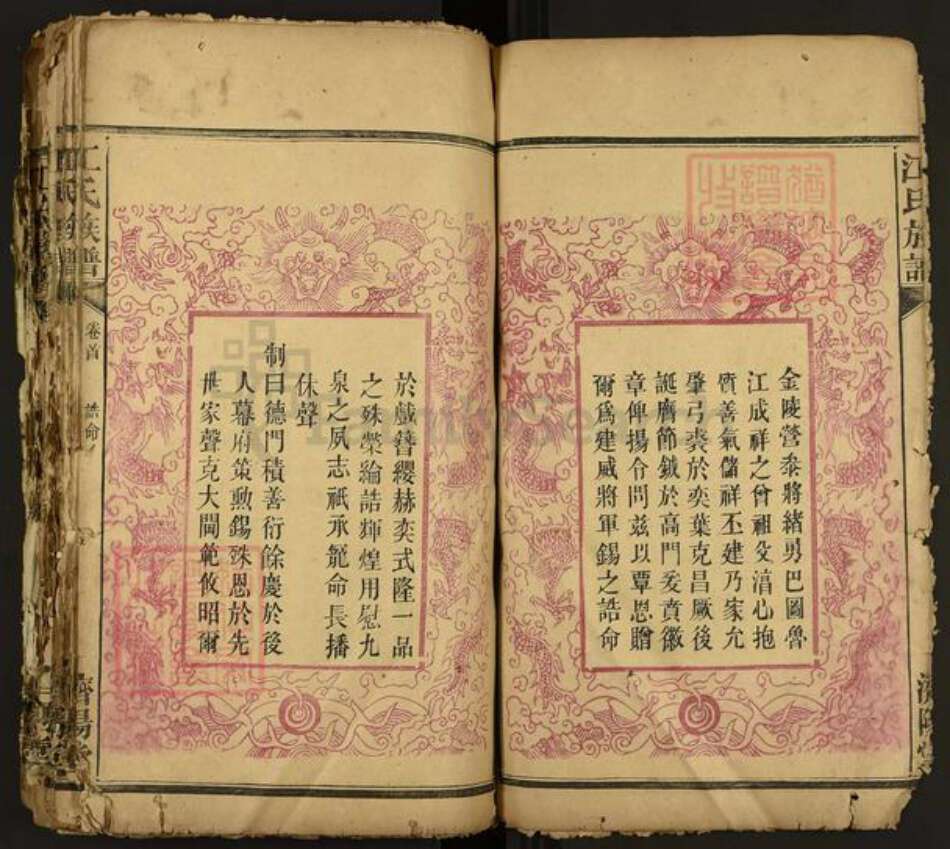 江氏族譜
金陵營叅將緒勇巴圖魯
江成祥之曾祖父淯心抱
質善氣儲祥丕建乃家允
肇弓裘於奕葉克昌厥後
誕膺節鉞於高門爰賁徽
章俾揚令問茲以覃恩贈
爾爲建威將軍錫之誥命
於戲簪纓赫奕式隆一品
之殊榮綸誥輝煌用慰九
泉之夙志祇承寵命長播
休聲
制曰德門積善衍餘慶於後
人幕府策勲錫殊恩於先
世家聲克大閫範攸昭爾
江氏族譜
卷首
誥命
濟陽堂